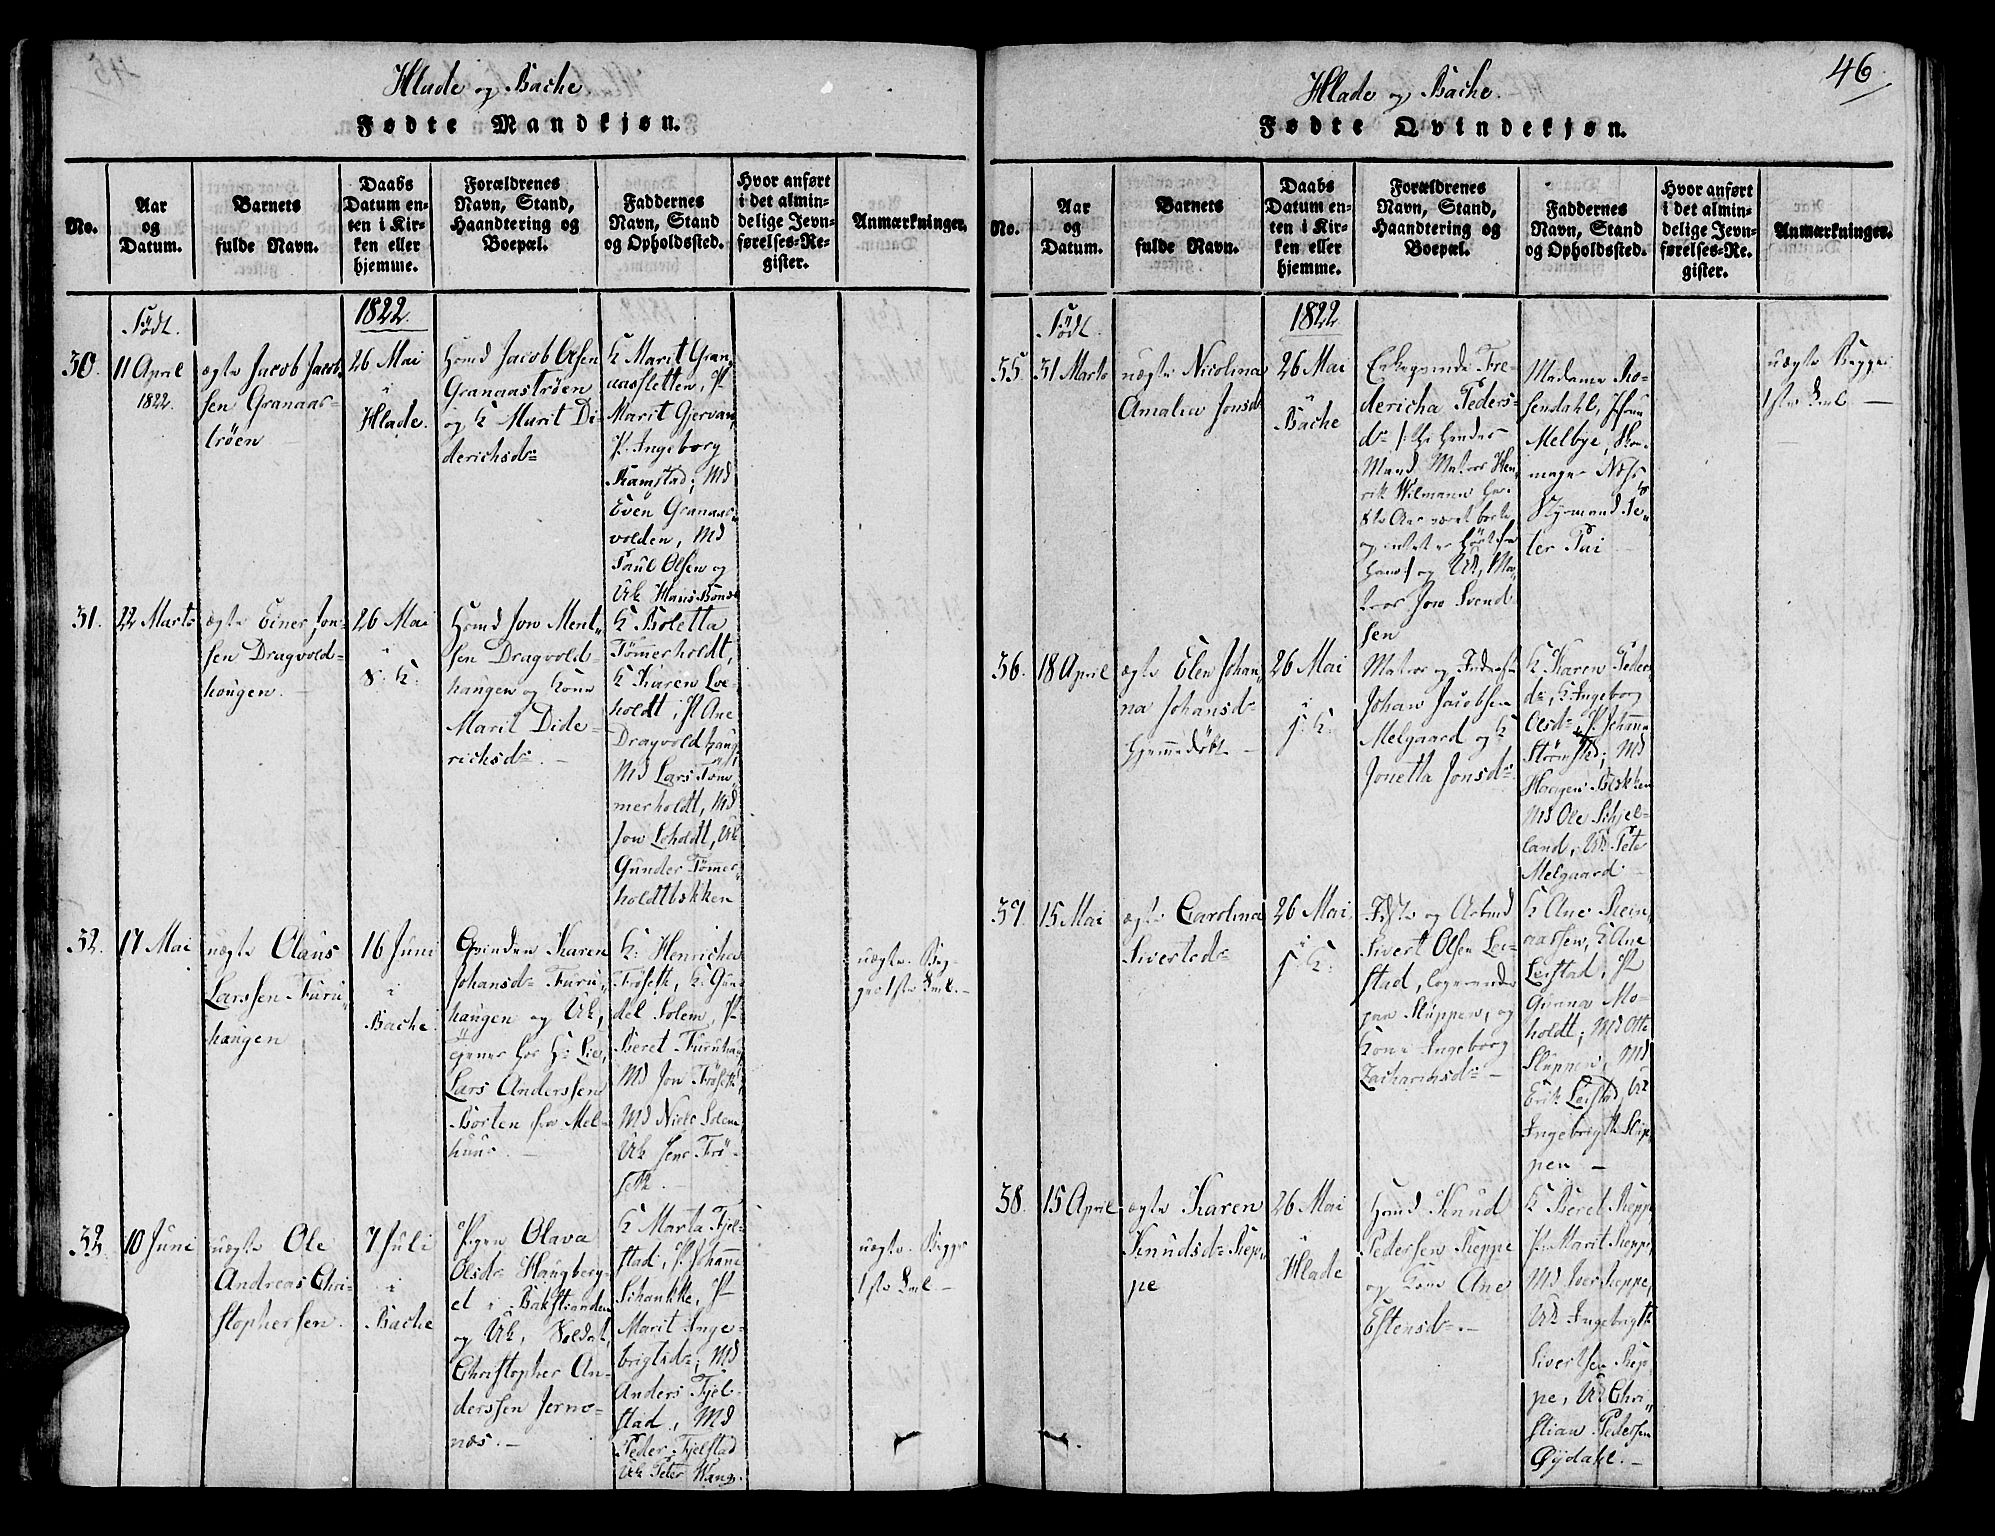 Hlade og Bache
Fødte Mandkjøn.
No.
Aar
og
Datum.
Barnets
fulde Navn.
Daabs
Datum en-
ten i Kir-
ken eller
hjemme.
Forældrenes
Navn, Stand,
Haandtering og
Boepæl.
Faddernes
Navn, Stand
og Opholdssted.
Hvor anført
i det almin-
delige Jevn-
førelses-Re-
gister.
Anmærkninger.
Født.
1822
30.
11 April
1822.
ægte Jacob Jacob-
sen Granaas-
trøen
26 Mai
i
Hlade.
Huusmd Jacob Olsen
Granaastrøen
og K Marit Di-
derichsdr
K Marit Gran-
aasletten, P
Marit Gjervan,
P. Ingeborg
Ramstad; Md
Even Granaas-
volden, Md
Paul Olsen og
Uk Hans Rønse
31.
22 Marts
ægte Einer Jon-
sen Dragvold-
haugen.
26 Mai
i
s. K.
Huusmd Jon Ment-
sen Dragvold-
haugen og Kone
Marit Dide-
richsdr.
K Boletta
Tømmerholdt,
K Karen Loe-
holdt, P Ane
Dragvoldhaug,
Md Lars Tøm-
merholdt, Md
Jon Loholdt, Uk
Gunder Tømmer-
holdtbækken
32.
17 Mai
uægte Olaus
Larssen Furu-
haugen
16 Juni
i
Bache.
Qvinden Karen
Johansdr Furu-
haugen og Uk,
Lars Anderssen
Borten fra Mel-
huus.
K. Henricha
Frøseth, K. Gun-
del Solem, P.
Beret Furuhaug,
Md Jon Frøseth,
Md Niels Solem
Uk Jens Frø-
seth.
uægte. Beg-
ges 1ste Leil.
32.
10 Juni
uægte Ole
Andreas Chri-
stophersen.
7 Juli
i
Bache
Pigen Olava
Olsdr Haugberg-
et i Bakstranden
og Uk, Soldat,
Christopher An-
derssen Jerno-
næs.
K Marta Fjel-
stad, P. Johanna
Schankke, P
Marit Inge-
brigtsdr; Md
Anders Fjel-
stad, Md
Peder Fjelstad
Uk Peter Wang.
uægte. Begges
1ste Leil
46
Hlade og Bache.
Fødte Qvindekjøn.
No.
Aar
og
Datum.
Barnets
fulde Navn.
Daabs
Datum en-
ten i Kir-
ken eller
hjemme.
Forældrenes
Navn, Stand,
Haandtering og
Boepæl.
Faddernes
Navn, Stand
og Opholdssted.
Hvor anført
i det almin-
delige Jevn-
førelses-Re-
gister.
Anmærkninger.
Født.
1822
35.
31 Marts
uægte Nicolina
Amalia Jonsdr
26 Mai
i
Bache
Enkeqvinde Fre-
dericha Peders-
dr
Mand Matros Hen-
rik Wilmann har
været borte
og intet er hørt fra
ham) og Uk, Ma-
tros Jon Svend-
sen
Madame Ro-
sendahl, Jfrue
Melbye, Sko-
mager Næss
Styrmand Pe-
ter Pai
uægte Begges
1ste Leil
36.
18 April
ægte Elen Johan-
na Johansdr
hjemmedøbt
26 Mai
i
s. K.
Matros og Inderst
Johan Jacobsen
Melgaard og K
Jonetta Jonsdr
K Karen Peders-
dr, K Ingeborg
Olsdr, P. Johanna
Strømsted; Md
Haagen Bækken
Md Ole Schjel-
land, Uk Peter
Melgaard
37.
15 Mai
ægte Carolina
Sivertsdr
26 Mai
i
s. K.
Indste og Arbmd
Sivert Olsen Lei-
stad, logerende
paa Sluppen, og
Kone Ingeborg
Zachariasdr
K Ane Stein-
aassen, K Ane
Leistad, P
Gurina Mo-
holdt; Md Otte
Sluppen, Md
Erik Leistad, Uk
Ingebrigt Slup-
pen
38.
15 April
ægte Karen
Knudsdr Ræp-
pe
26 Mai
i
Hlade
Huusmd Knud
Pedersen Reppe
og Kone Ane
Estensdr.
K Beret Reppe
P. Marit Reppe,
Md Iver Reppe,
Uk Ingebrigt
Sivertsen Rep-
pe, Uk Chri-
stian Pedersen
Øydahl.